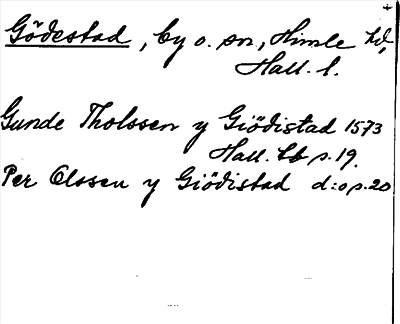 Gödestad, by o. sn., Himle hd,
Hall. l.
Gunde Tholssen y Giödistad 1573
Hall. lb p. 19.
Per Olssen y Giödistad d:o p. 20